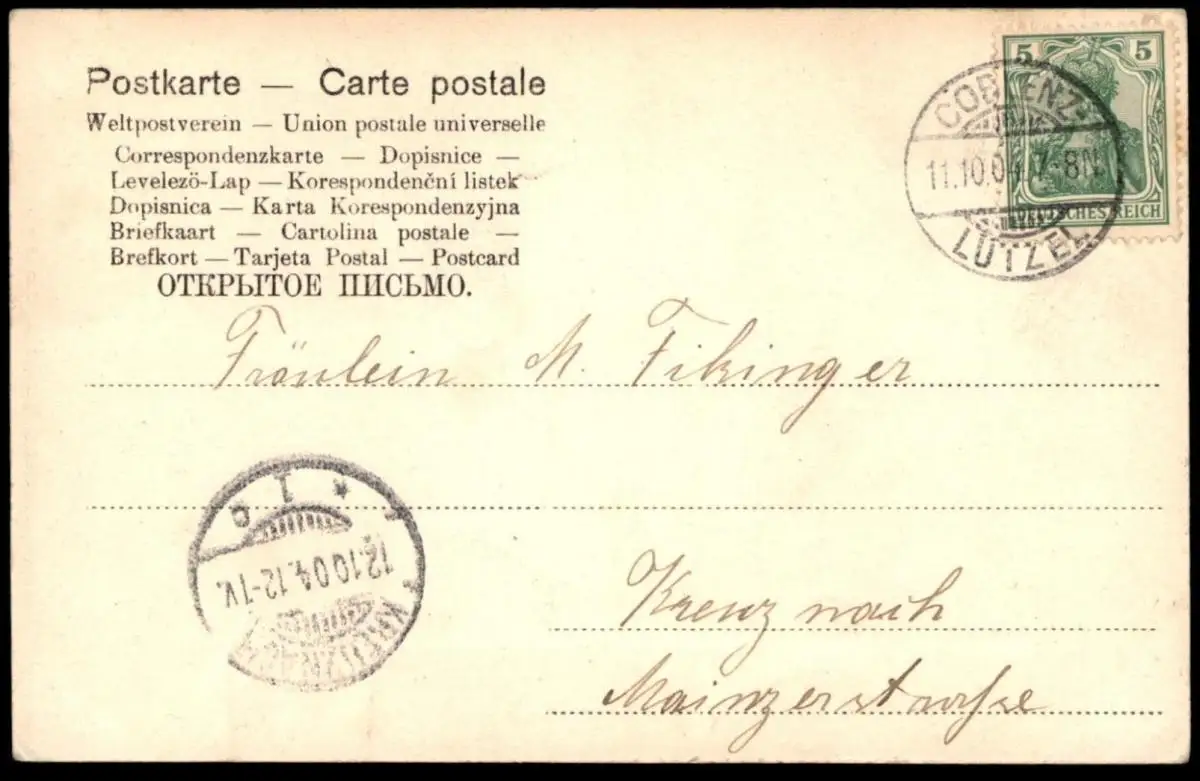 Postkarte — Carte postale
Weltpostverein — Union postale universelle
Correspondenzkarte — Dopisnice —
Levelezö-Lap — Korespondenční listek
Dopisnica — Karta Korespondenzyjna
Briefkaart — Cartolina postale —
Brefkort — Tarjeta Postal — Postcard
ОТКРЫТОЕ ПИСЬМО.
5 5
DEUTSCHES REICH
COBLENZ-
11.10.04. 7-8N.
LÜTZEL
Fräulein M. Fikinger
* 1 c
12.10.04.12-1V.
KREUZNACH
Kreuznach
Mainzerstrasse